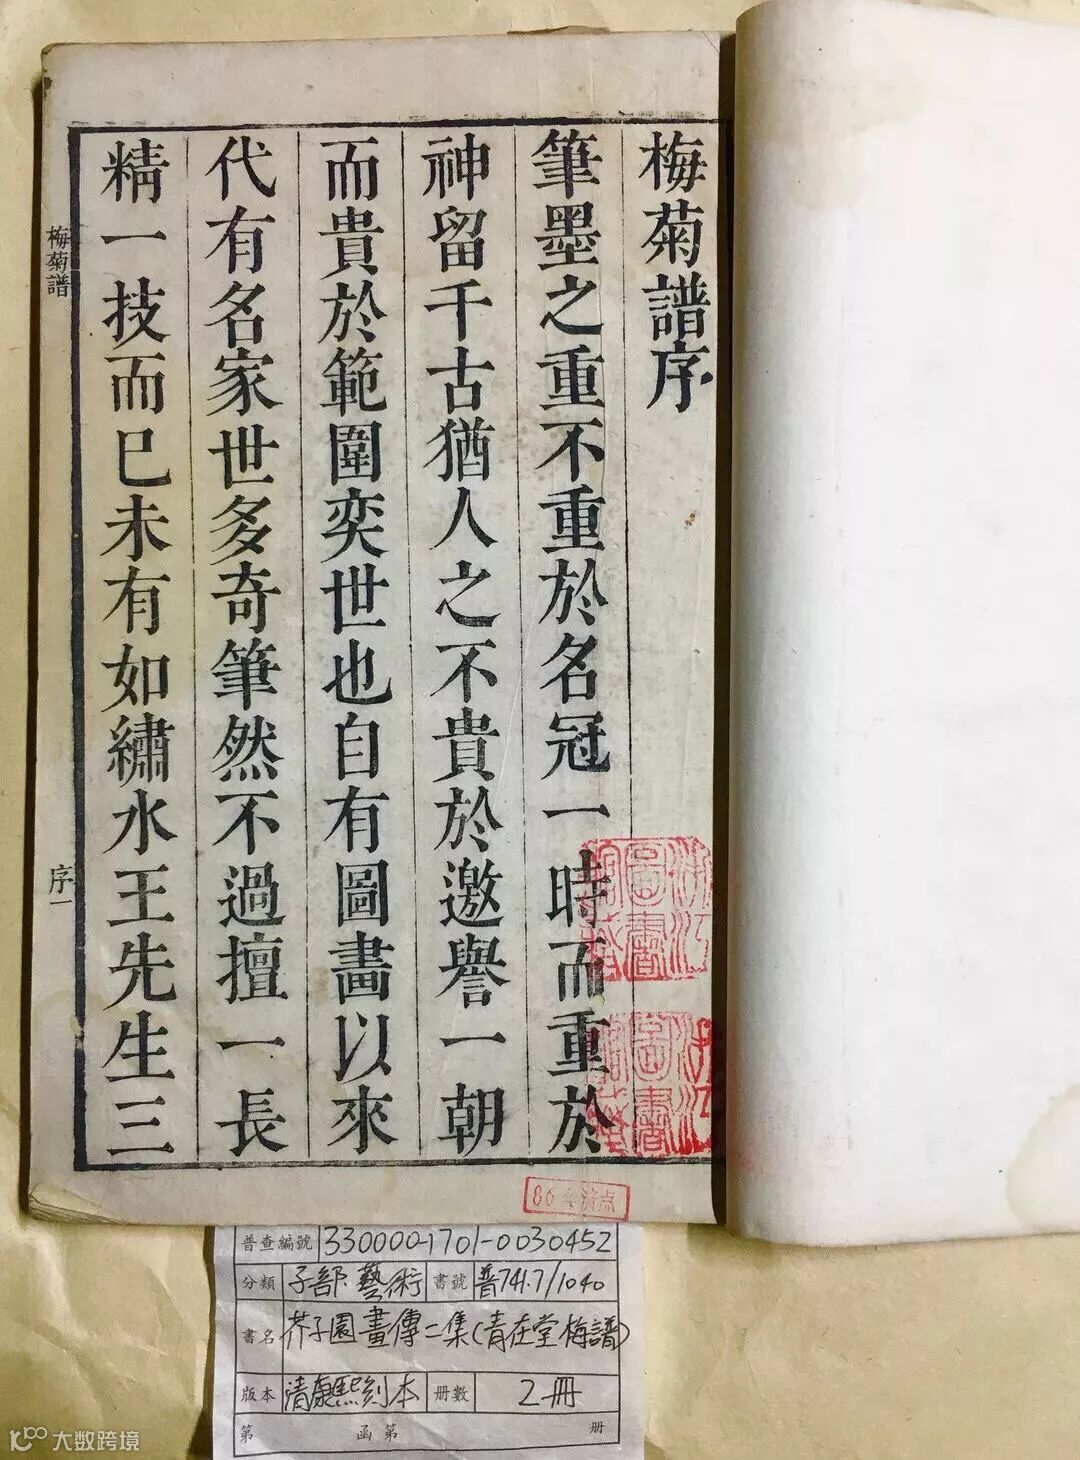 梅菊譜序
筆墨之重不重於名冠一時而重於
神留千古猶人之不貴於邀譽一朝
而貴於範圍奕世也自有圖畫以來
代有名家世多奇筆然不過擅一長
精一技而已未有如繡水王先生三
梅菊譜
序一
浙江
圖書
浙江
圖書
86年清点
普查編號 330000-1701-0030452
分類 子部 藝術 書號 普741.7/1040
書名 芥子園畫傳二集(青在堂梅譜)
版本 清康熙刻本 册數 2冊
第 函 第 册
大数跨境